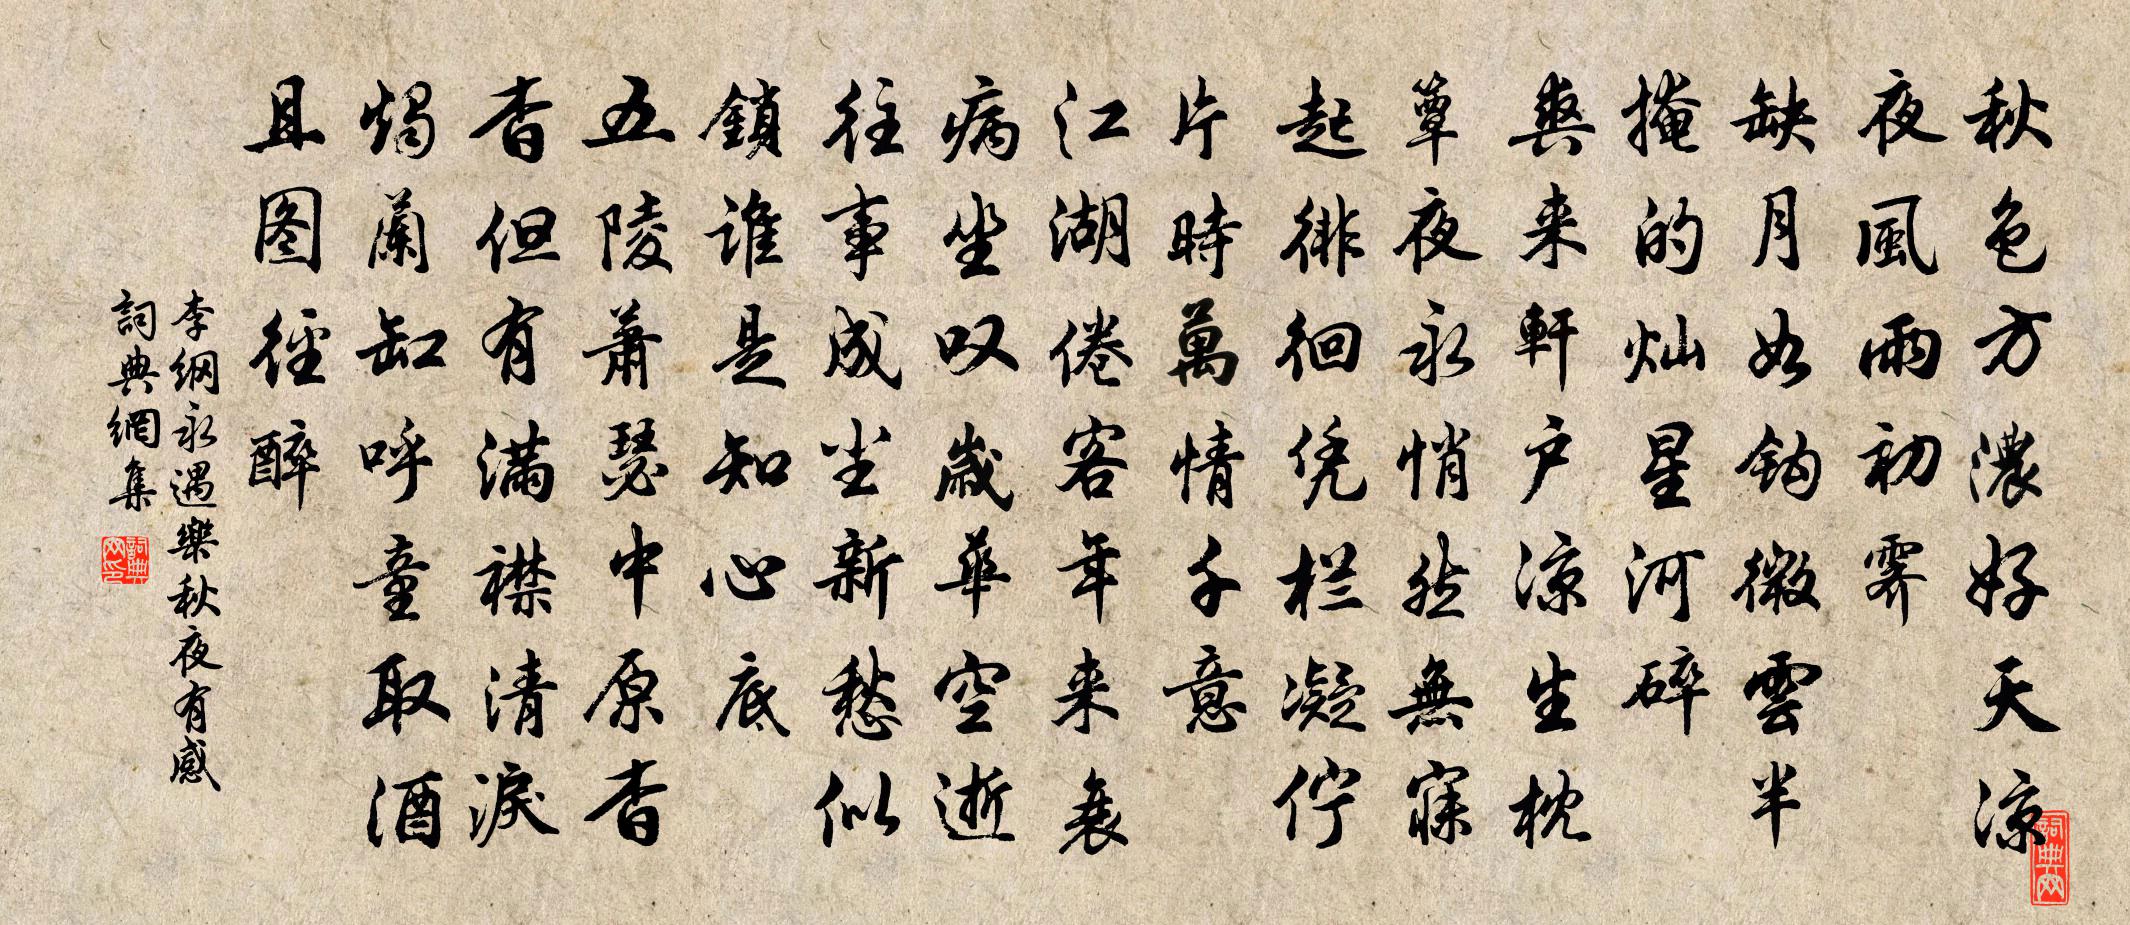 秋色方濃好天涼
夜風雨初霽
缺月如鈎微雲半
掩的灿星河碎
爽来軒户涼生枕
簟夜永悄然無寐
起徘徊凭栏凝佇
片時萬情千意
江湖倦客年来衰
病坐叹歲華空逝
往事成尘新愁似
鎖谁是知心底
五陵萧瑟中原杳
杳但有满襟清淚
燭蘭缸呼童取酒
且图徑醉
李纲永遇樂秋夜有感
詞典網集
詞典网印
詞典网